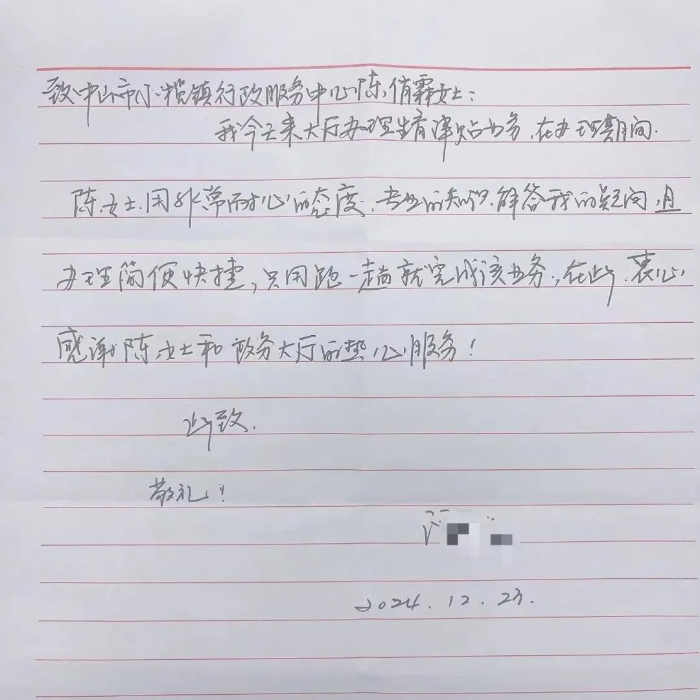 致中山市小榄镇行政服务中心陈俏霖女士：
我今天来大厅办理生育津贴业务，在办理期间.
陈女士用非常耐心的态度、专业的知识解答我的疑问，且
办理简便快捷，只用跑一趟就完成该业务，在此，衷心
感谢陈女士和政务大厅的热心服务！
此致.
敬礼！
2024.12.23.